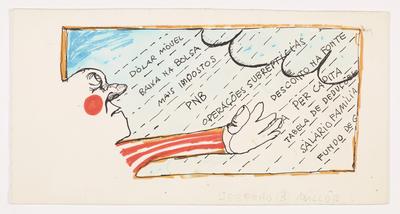 DÓLAR MÓVEL
BAIXA NA BOLSA
MAIS IMPOSTOS
PNB
OPERAÇÕES SUBREPTÍCIAS
DESCONTO NA FONTE
PER CAPITA
TABELA DE
SALÁRIO FAMÍLIA
FUNDO DE G